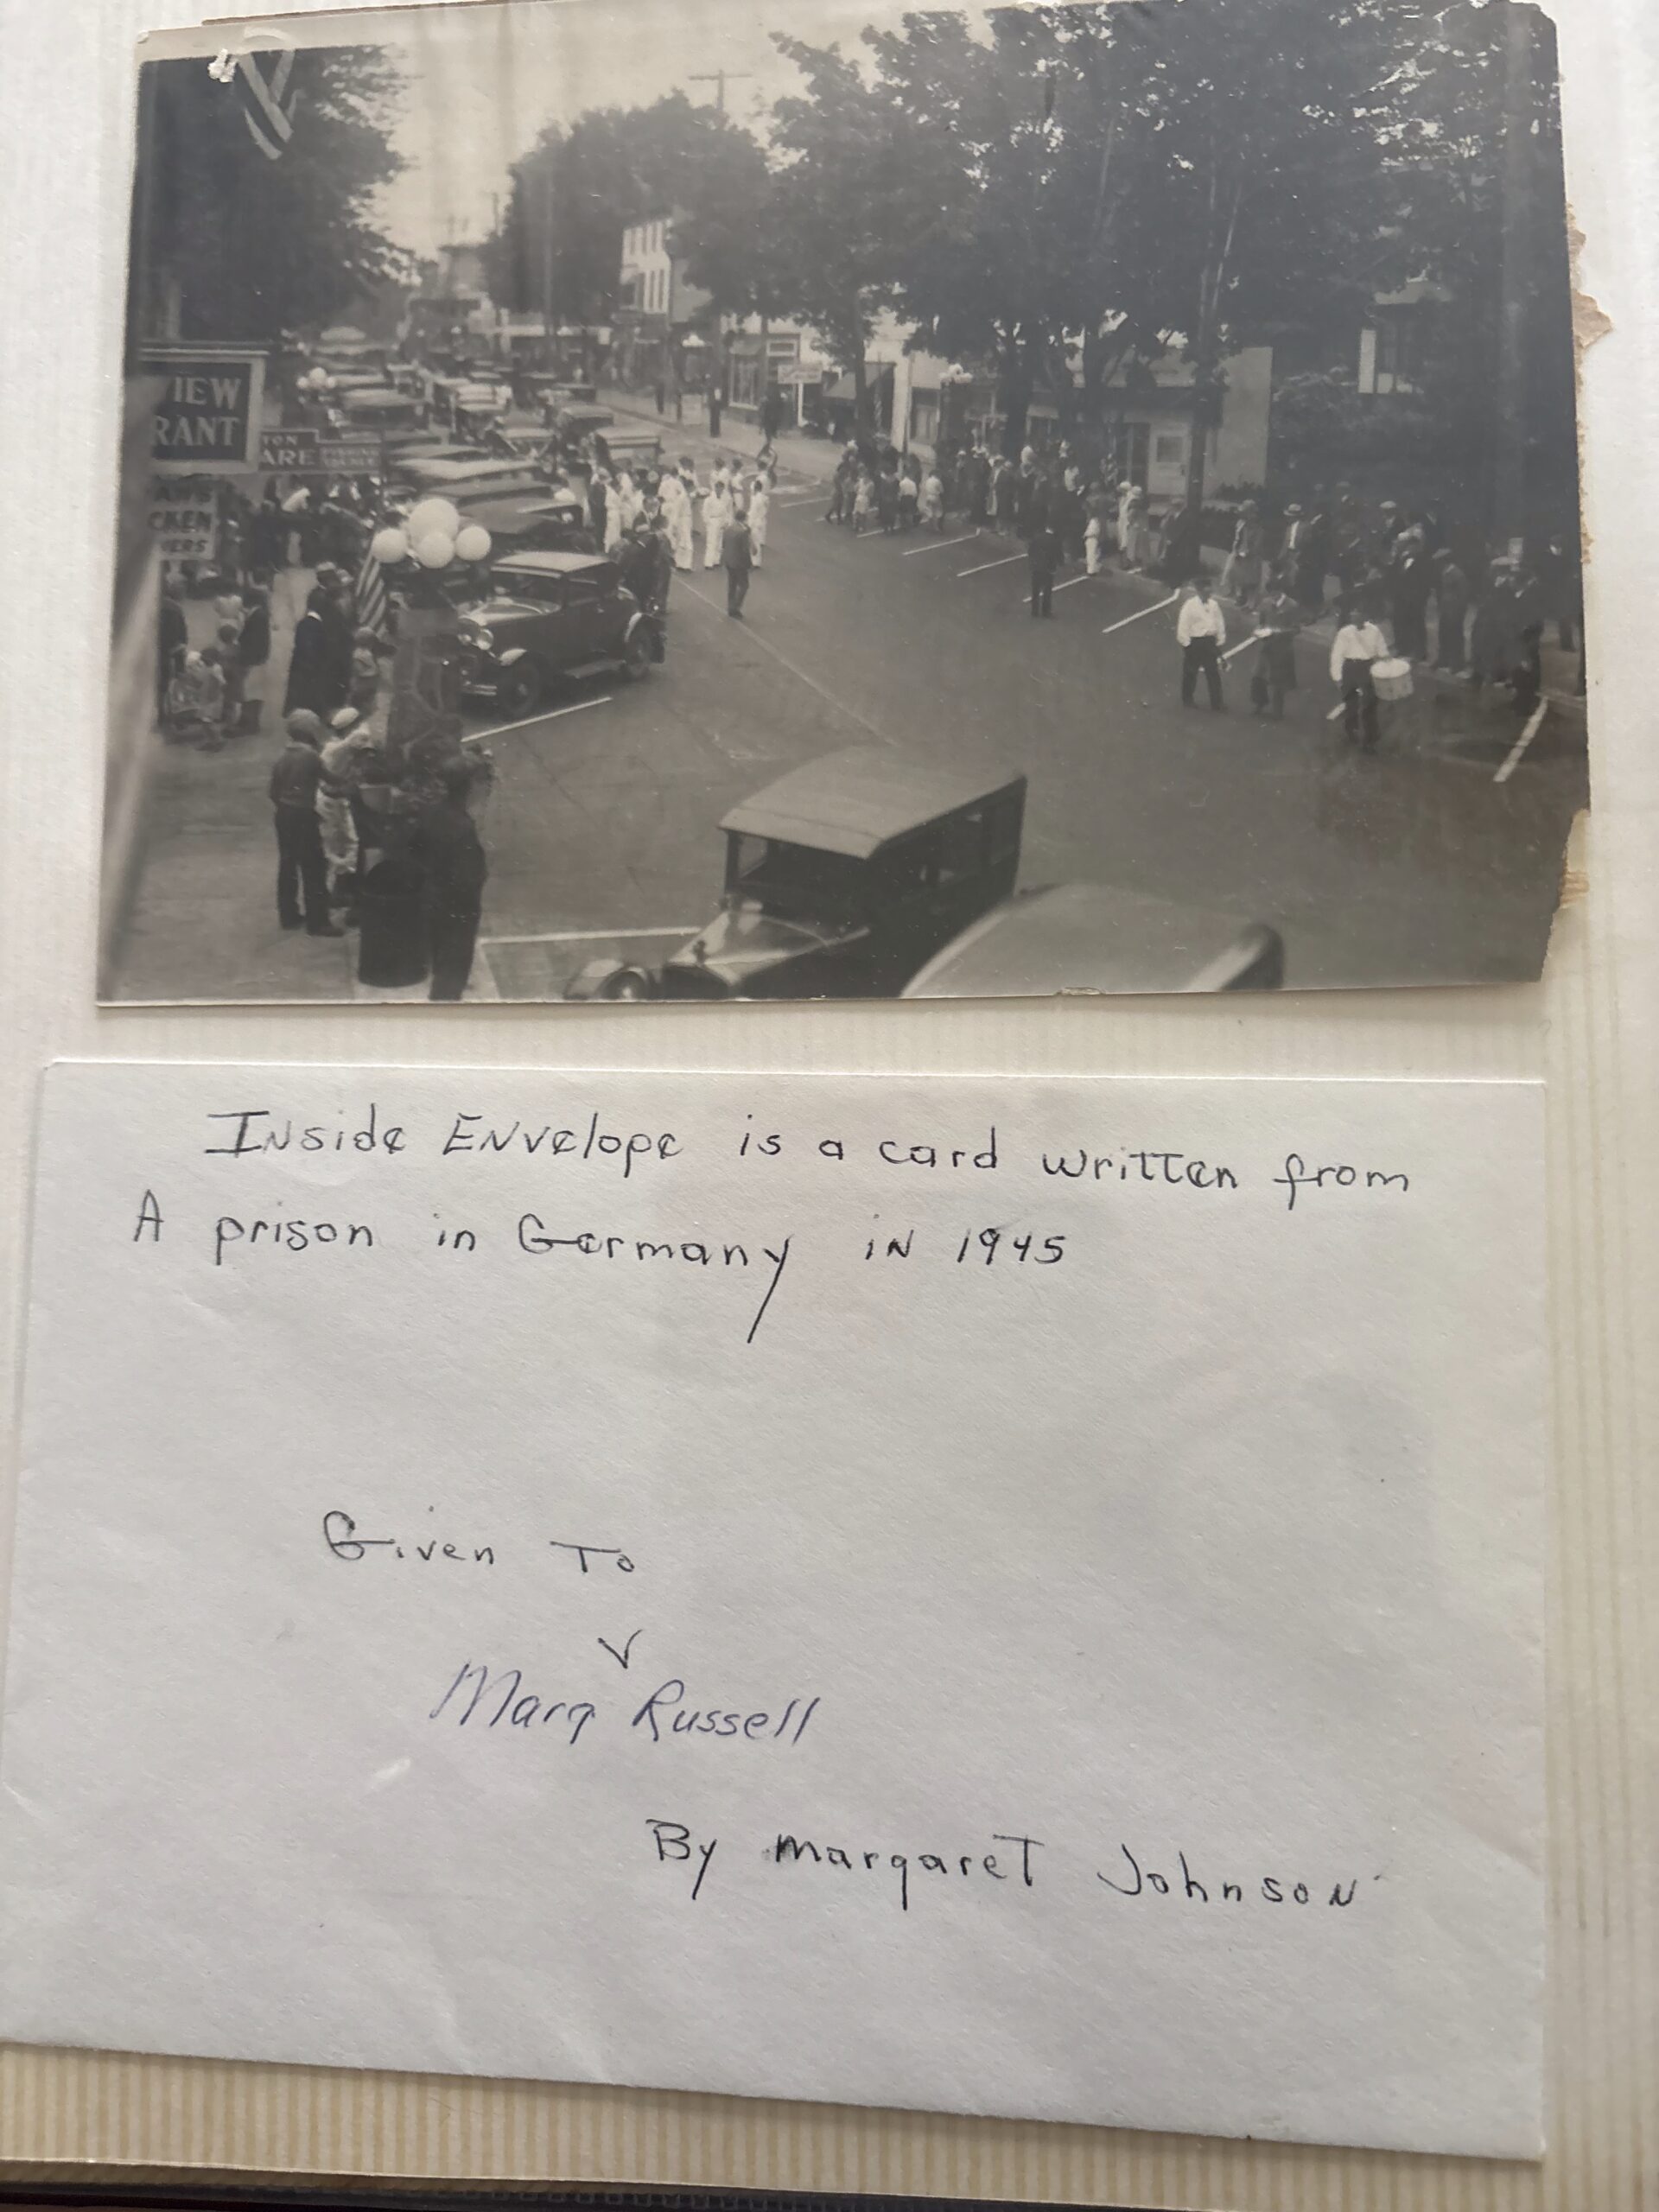 VIEW
RANT
TON
ARE
CKEN
Inside Envelope is a card written from
A prison in Germany in 1945
Given To
Marg Russell
By Margaret Johnson